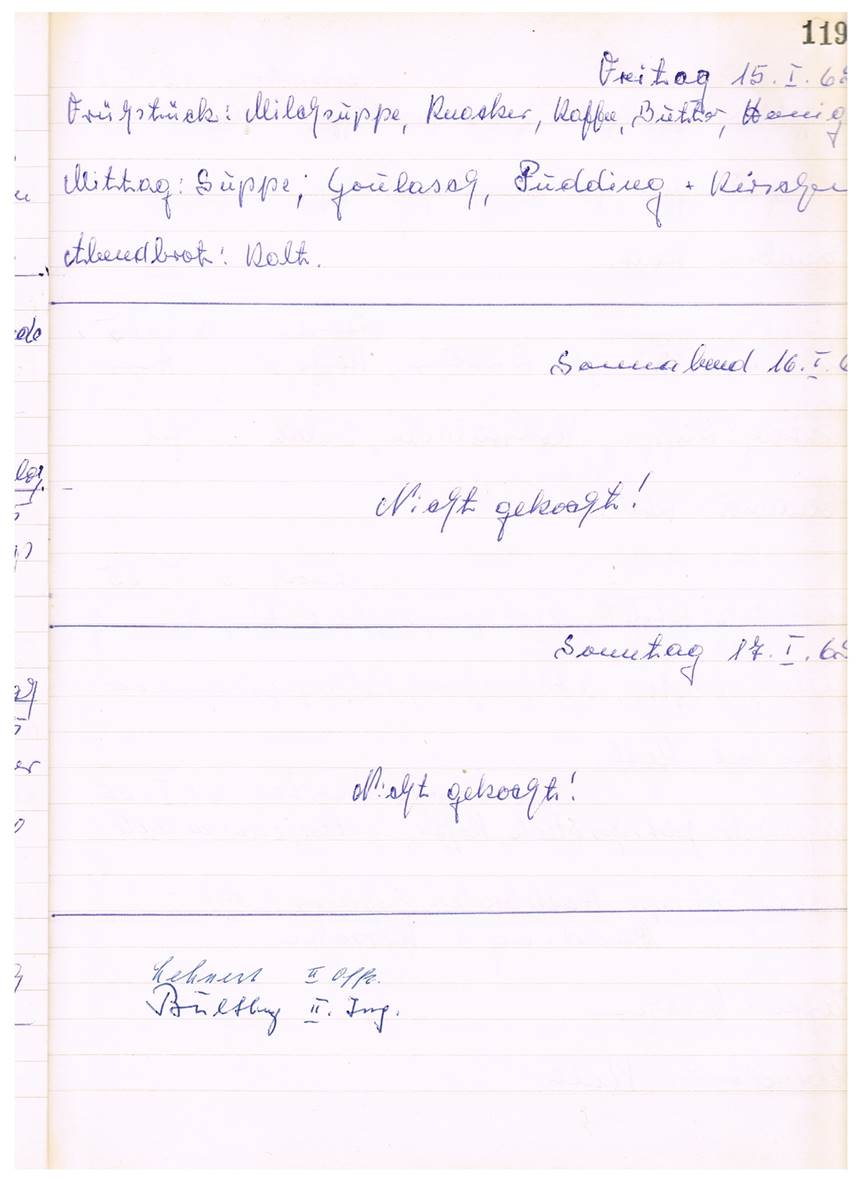 119
Freitag 15. I. 6
Frühstück: Milchsuppe, Knacker, Kaffee, Butter, Honig
Mittag: Suppe, Goulasch, Pudding + Kirschen
Abendbrot: Kalt.
Sonnabend 16. I. 6
Nicht gekocht!
Sonntag 17. I. 6
Nicht gekocht!
Lehnert II Offz.
II. Ing.